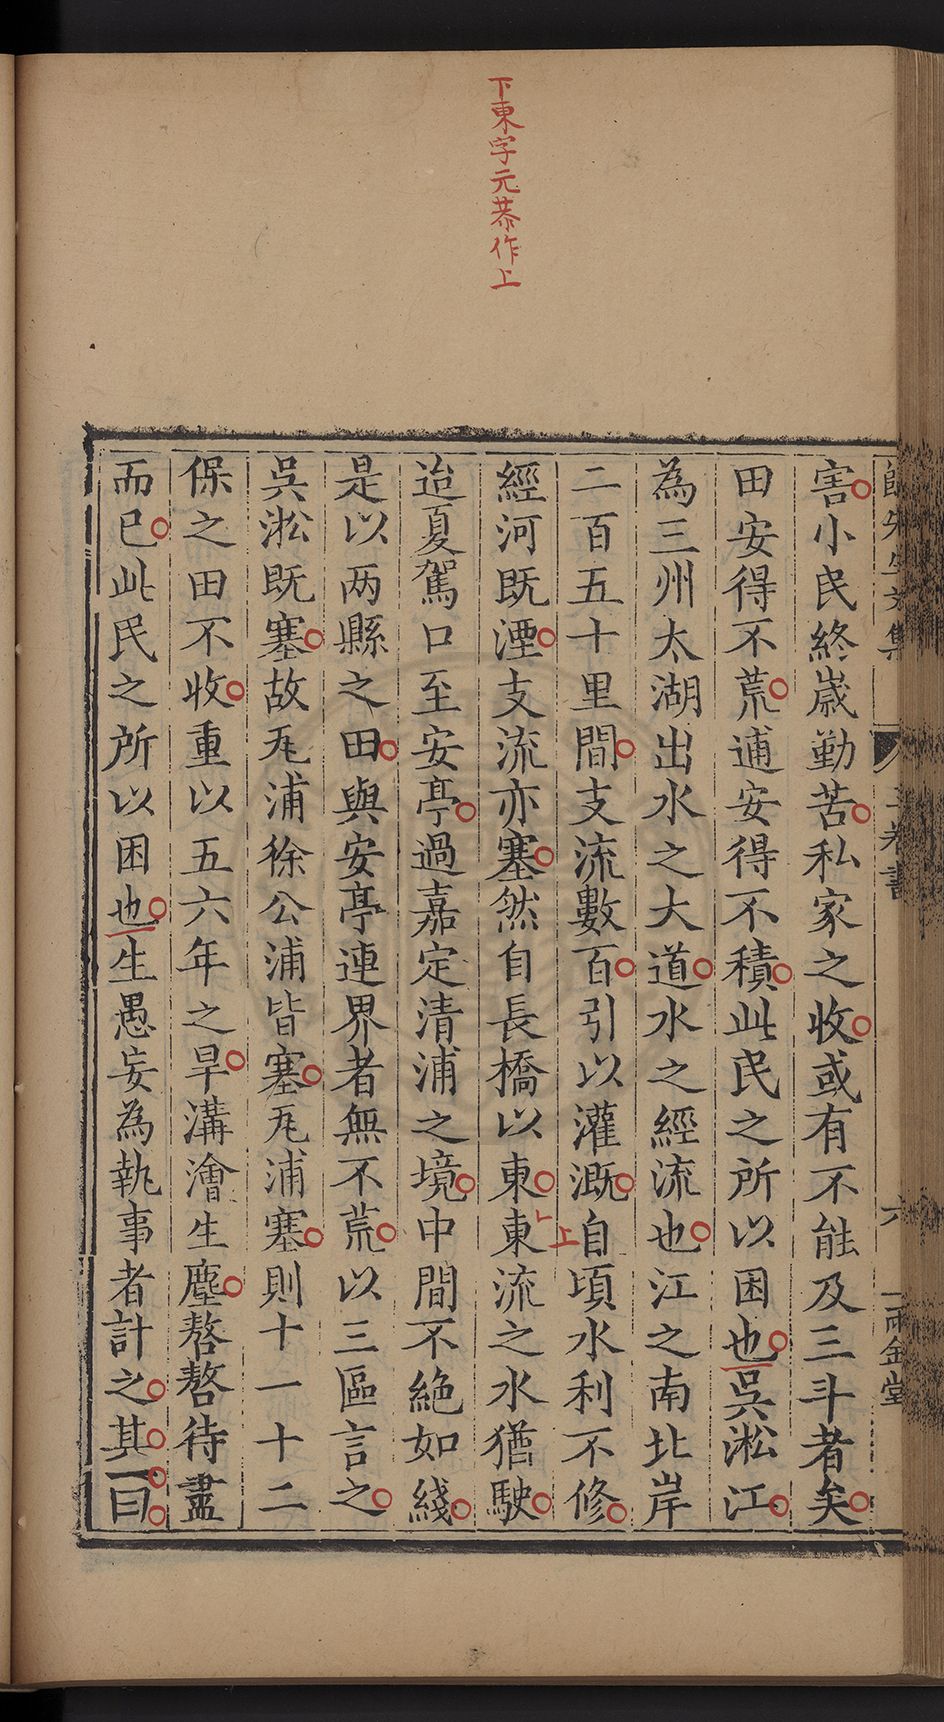 下東字元恭作上
害小民終歲勤苦私家之收或有不能及三斗者矣
田安得不荒逋安得不積此民之所以困也吳淞江
為三州太湖出水之大道水之經流也江之南北岸
二百五十里間支流數百引以灌溉自頃水利不修
上
經河既湮支流亦塞然自長橋以東東流之水猶駛
迨夏駕口至安亭過嘉定清浦之境中間不絕如綫
是以两縣之田與安亭連界者無不荒以三區言之
吳淞既塞故瓦浦徐公浦皆塞瓦浦塞則十一十二
保之田不收重以五六年之旱溝澮生塵嗸嗸待盡
而已此民之所以困也生愚妄為執事者計之其一曰